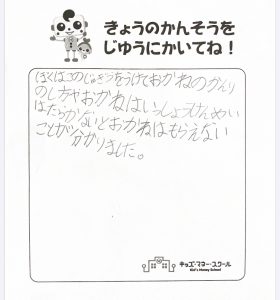 きょうのかんそうを
じゆうにかいてね！
ぼくはこのじゅぎょうをうけておかねのかんり
のし方やおかねはいっしょうけんめい
はたらかないとおかねはもらえない
ことが分かりました。
キッズ・マネー・スクール
Kid's Money School